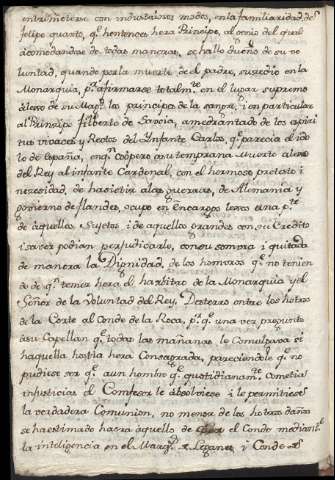 entrometerse con industriosos modos, en la familiaridad de
felipe quarto, q.e hentonces hera Principe, al genio del qual
acomodandose de todas maneras, se hallo dueño de su vo
luntad, quando por la muerte de el padre, susedio en la
Monarquia, p.a afirmarse totalm.te en el lugar supremo
alexo de su Mag.d los principes de la sangre, i en particular
al Prinsipe filiberto de Savoia, amedrantado de los espiri
tus vivaces y Rectos del Ynfante Carlos, q.e parecia el ido
lo de España, en q.n coopero su temprana Muerte alexo
del Rey al infante Cardenal, con el hermoso pretesto i
necesidad, de hasistir a las guerras, de Alemania y
govierno de flandes, ocupo en Encargos lexos una p.te
de aquellos Sujetos i de aquellos grandes con su Credito
i saver podian perjudicarle, con su sompra i quitada
de manera la Dignidad, de los homores q.e no tenien
do de q.e temer hera el harbitro de la Monarquia y el
Señor de la Voluntad del Rey. Desterro entre los hotros
de la Corte al Conde de la Roca, p.r q.e una ver pregunto
a su Capellan q.e todas las mañanas le Comulgava si
haquella hostia hera Consagrada, pareciendole q.e no
pudiese ser q.e aun hombre q.e quotidianam.te cometia
injusticias el Comfesor le absolviese i le permitiese
la verdadera Comunion, no menor de los hotros daños
se ha estimado hacra aquello de el Conde mediant.e
la inteligencia en el Marq.s de Leganes i Conde de